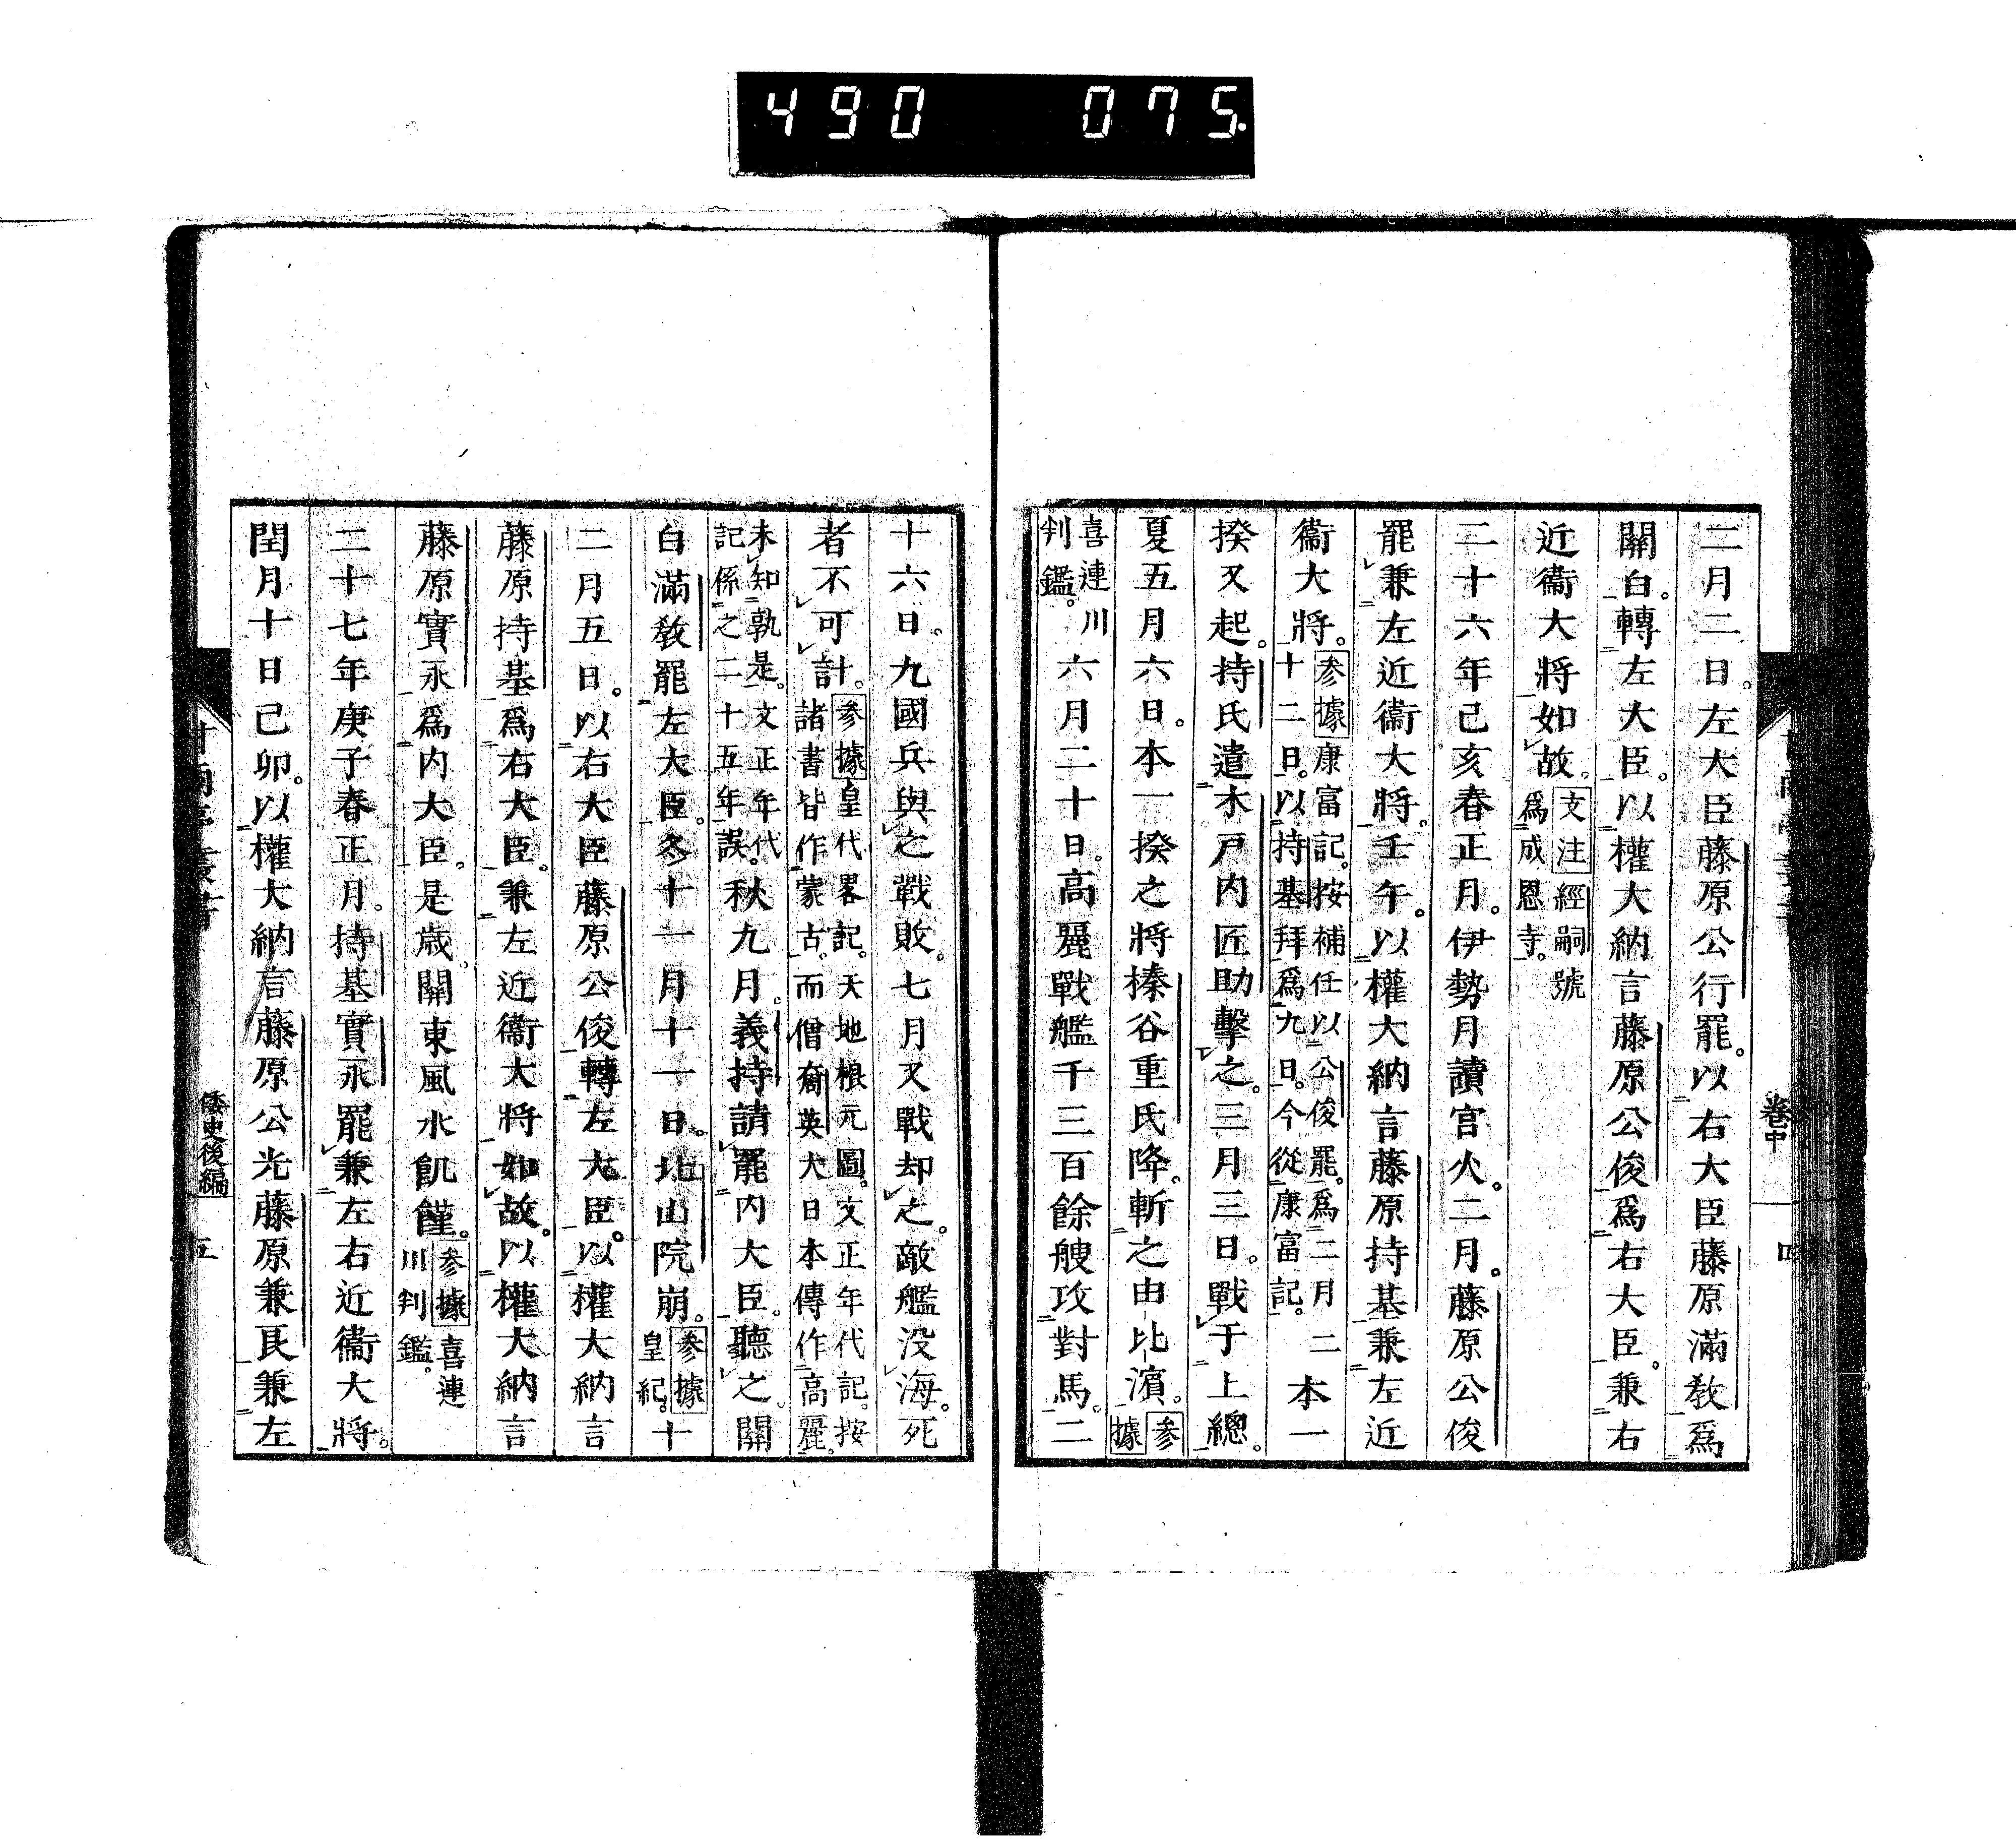 490 075
二月二日。左大臣藤原公行罷。以右大臣藤原滿教爲
關白。轉左大臣。以權大納言藤原公俊爲右大臣。兼右
近衞大將如故。文注經嗣號
爲成恩寺。
二十六年己亥春正月。伊勢月讀宮火。二月。藤原公俊
罷兼左近衞大將。壬午。以權大納言藤原持基兼左近
衞大將。参據康富記。按補任以公俊罷。爲二月二
十二日。以持基拜爲九日。今從康富記。本一
揆又起。持氏遣木戸内匠助擊之。三月三日。戰于上總。
夏五月六日。本一揆之將榛谷重氏降。斬之由比濱。参
據
喜連川
判鑑。六月二十日。高麗戰艦千三百餘艘攻對馬。二
卷中
四
十六日。九國兵與之戰敗。七月又戰却之。敵艦没海。死
者不可計。参據皇代畧記。天地根元圖。文正年代記。按
諸書皆作蒙古。而僧裔英大日本傳作高麗。
未知孰是。文正年代
記係之二十五年。誤。秋九月。義持請罷内大臣。聽之。關
白滿敎罷左大臣。冬十一月十一日。北山院崩。参據
皇紀。十
二月五日。以右大臣藤原公俊轉左大臣。以權大納言
藤原持基爲右大臣。兼左近衞大將如故。以權大納言
藤原實永爲内大臣。是歳。關東風水飢饉。参據喜連
川判鑑。
二十七年庚子春正月。持基實永罷兼左右近衞大將。
閏月十日己卯。以權大納言藤原公光藤原兼良兼左
倭史後編
五